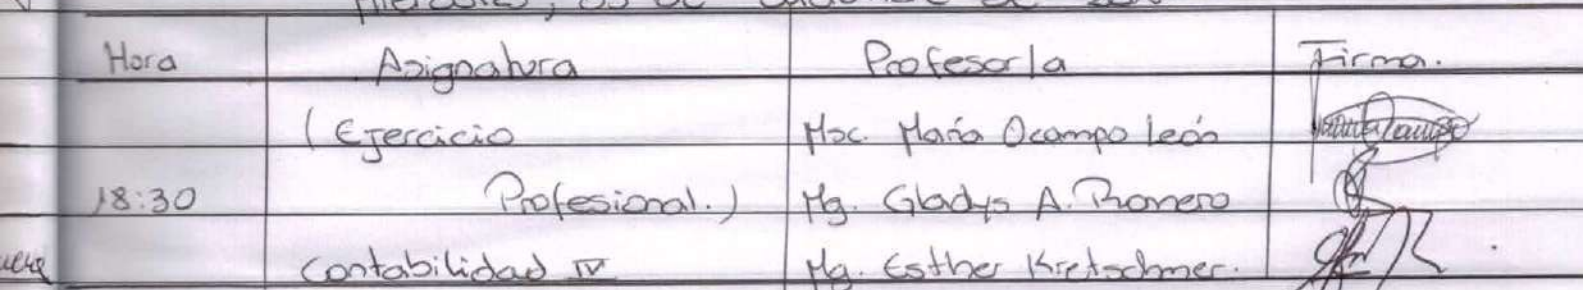 Miércoles, 03 de
Hora Asignatura Profesor/a Firma.
(Ejercicio Msc. María Ocampo León
18:30 Profesional.) Mg. Gladys A. Romero
Contabilidad IV Mg. Esther Kretschmer.